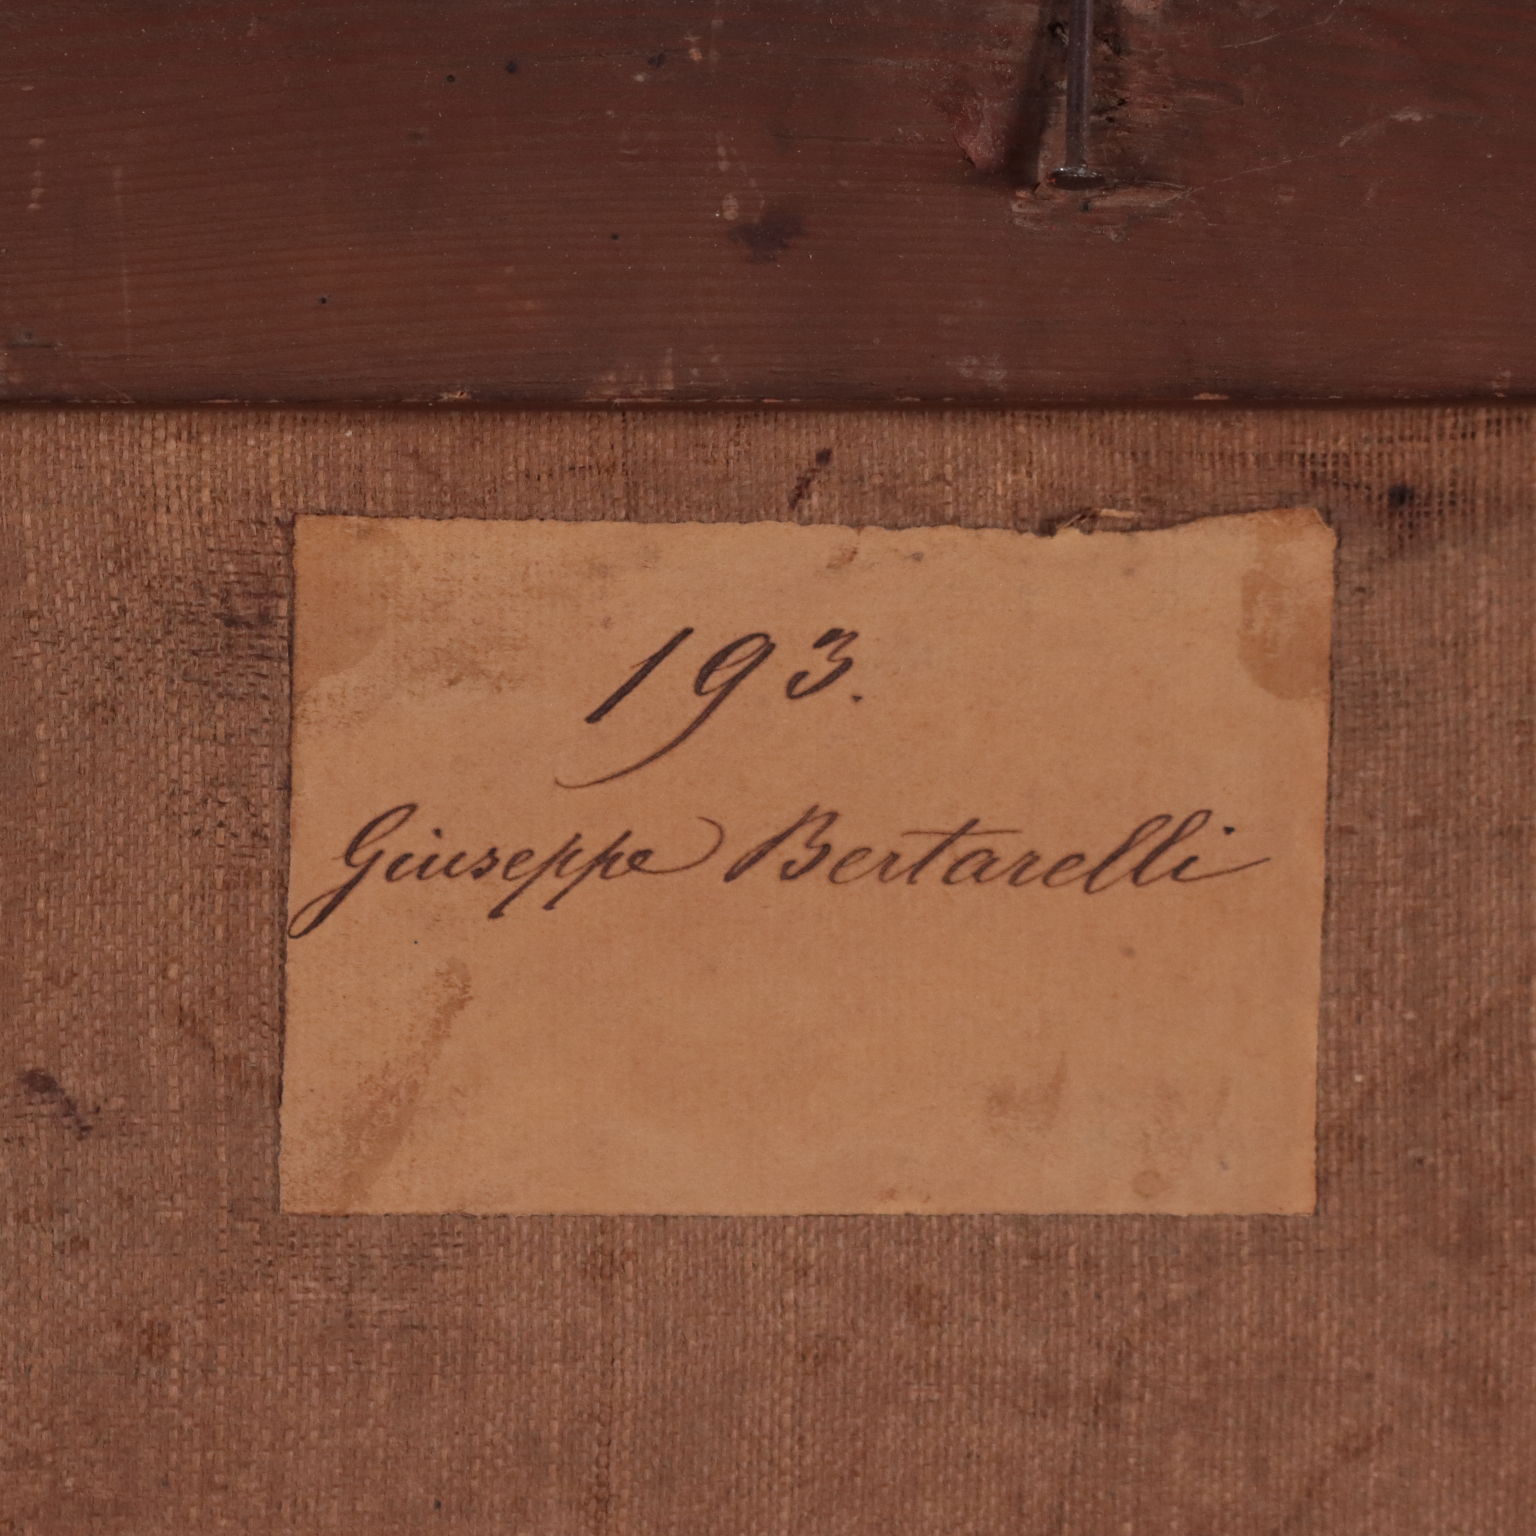 193.
Giuseppe Bertarelli